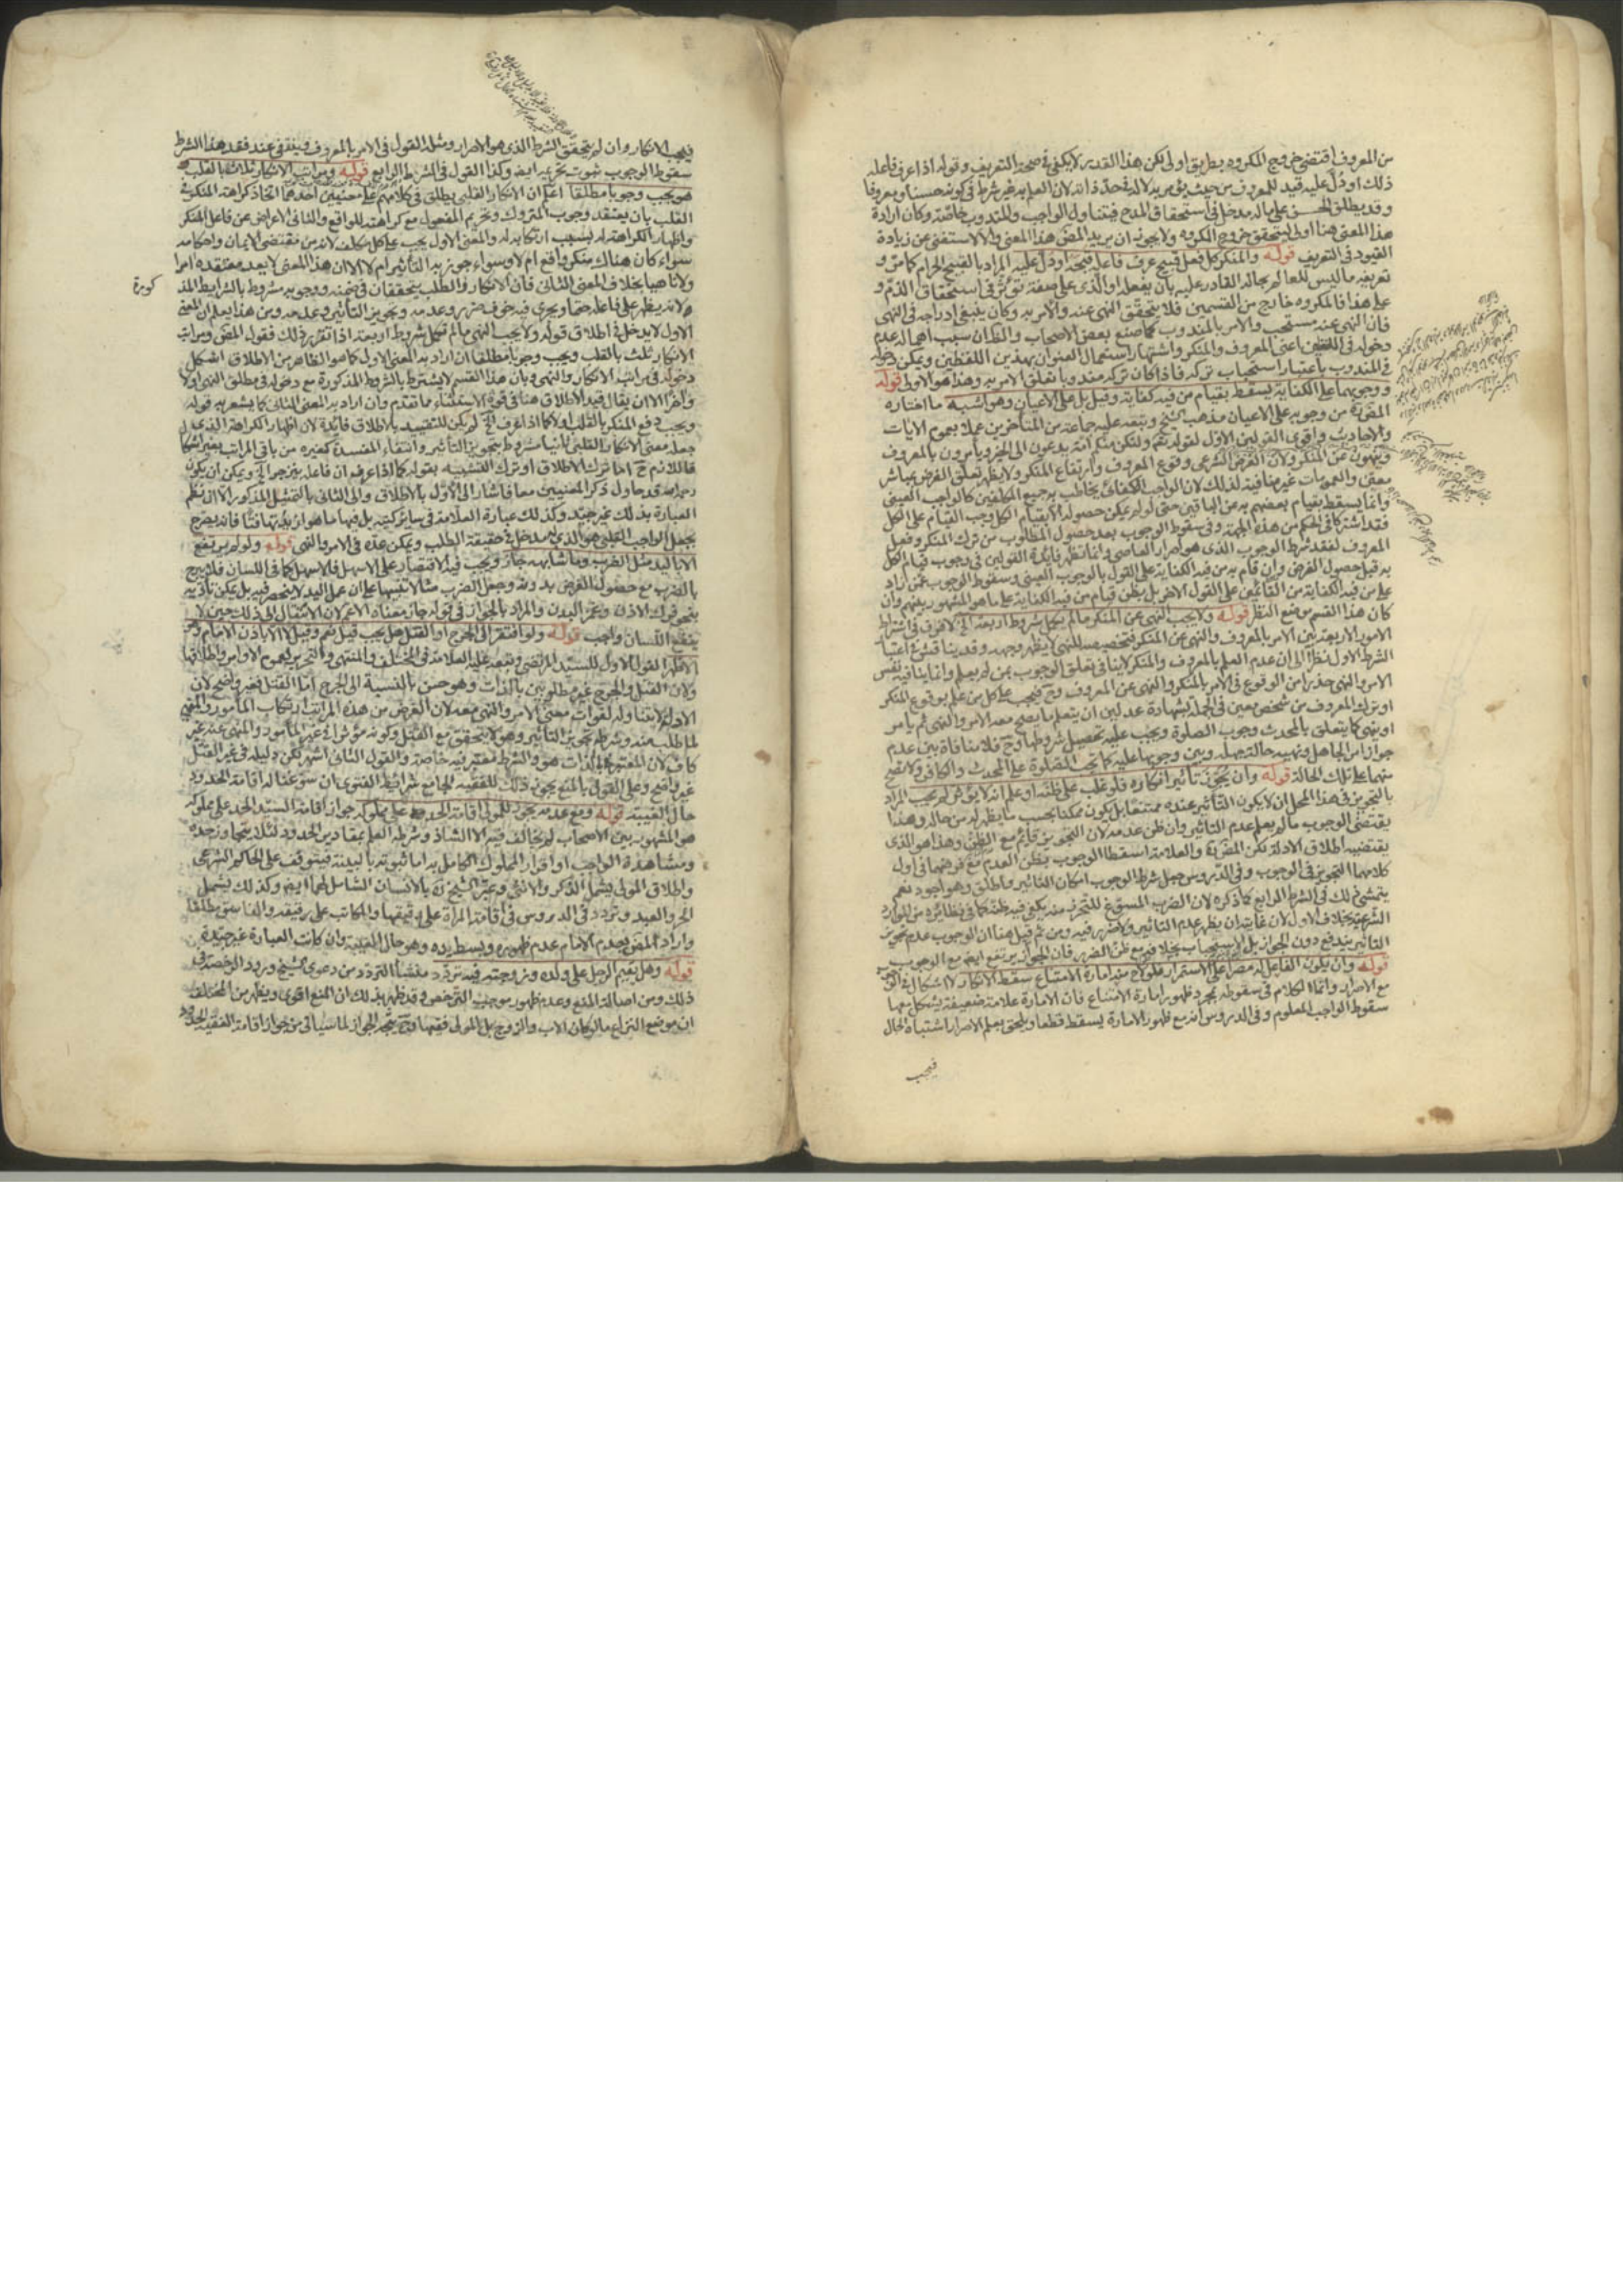 من المعروف اقتضى خروج المكروه بطريق اولى لكن هذا القدر لا يكفي في صحة التعريف وقوله اذا عرف فاعله
ذلك او دل عليه قيد للمعروف من حيث يؤمر به لا له في حد ذاته لان العلم به غير شرط في كونه حسنا ومعروفا
وقد يطلق الحسن على ما له مدخل في استحقاق المدح فيتناول الواجب والمندوب خاصة وكان ارادة
هذا المعنى هنا اولى ليتحقق خروج المكروه ولا يجوز ان يريد المص هذا المعنى والا لاستغنى عن زيادة
القيود في التعريف قوله والمنكر كل فعل قبيح عرف فاعله قبحه او دل عليه المراد بالقبيح الحرام كما مر و
تعريفه ما ليس للعالم بحاله القادر عليه بان يفعله او الذي على صفة تؤثر في استحقاق الذم و
على هذا فالمكروه خارج من القسمين فلا يتحقق النهي عنه والامر به وكان ينبغي ادراجه في النهي
فان النهي عنه مستحب والامر بالمندوب كما صنع بعض الاصحاب والظ ان سبب اهماله عدم
دخوله في اللفظين اعني المعروف والمنكر واشتهار استعمال العنوان بهذين اللفظين ويمكن دخوله
في المندوب باعتبار استحباب تركه فاذا كان تركه مندوبا تعلق الامر به وهذا هو الاولى قوله
ووجوبهما على الكفاية يسقط بقيام من فيه كفاية وقيل بل على الاعيان وهو اشبه ما اختاره
المص ره من وجوبه على الاعيان مذهب الشيخ وتبعه عليه جماعة من المتاخرين عملا بعموم الايات
والاحاديث واقوى القولين الاول لقوله تعم ولتكن منكم امة يدعون الى الخير ويأمرون بالمعروف
وينهون عن المنكر ولان الغرض الشرعي وقوع المعروف وارتفاع المنكر ولا يظهر تعلق الغرض بمباشر
معين والعمومات غير منافية لذلك لان الواجب الكفائي يخاطب به جميع المكلفين كالواجب العيني
وانما يسقط بقيام بعضهم به عن الباقين حتى لو لم يمكن حصوله الا بقيام الكل وجب القيام على الكل
فقد اشتركا في الحكم من هذه الجهة وفي سقوط الوجوب بعد حصول المطلوب من ترك المنكر وفعل
المعروف لفقد شرط الوجوب الذي هو اصرار العاصي وانما تظهر فايدة القولين في وجوب قيام الكل
به قبل حصول الغرض وان قام به من فيه الكفاية على القول بالوجوب العيني وسقوط الوجوب عمن زاد
على من فيه الكفاية من القائمين على القول الاخر بل بظن قيام من فيه الكفاية على ما هو المشهور بينهم وان
كان هذا القسم موضع النظر قوله ولا يجب النهي عن المنكر ما لم يكمل شروط اربعة الخ لا فرق في اشتراط
الامور الاربعة بين الامر بالمعروف والنهي عن المنكر فتخصيصه للنهي لا يظهر وجهه وقد يناقش في اعتبار
الشرط الاول نظرا الى ان عدم العلم بالمعروف والمنكر لا ينافي تعلق الوجوب بمن لم يعلم وانما ينافيه نفس
الامر والنهي حذرا من الوقوع في الامر بالمنكر والنهي عن المعروف وح فيجب على كل من علم بوقوع المنكر
او ترك المعروف من شخص معين في الجملة بشهادة عدلين ان يتعلم ما يصح معه الامر والنهي ثم يامر
او ينهى كما يتعلق بالمحدث وجوب الصلوة ويجب عليه تحصيل شروطها وح فلا منافاة بين عدم
جواز امر الجاهل ونهيه حالة جهله وبين وجوبهما عليه كما تجب الصلوة على المحدث والكافر ولا تصح
منهما على تلك الحالة قوله وان يجوز تاثير انكاره فلو غلب على ظنه او علم انه لا يؤثر لم يجب المراد
بالتجويز في هذا المحل ان لا يكون التأثير عنده ممتنعا بل يكون ممكنا بحسب ما يظهر له من حاله وهذا
يقتضي الوجوب ما لم يعلم عدم التاثير وان ظن عدمه لان التجويز قائم مع الظن وهذا هو الذي
يقتضيه اطلاق الادلة لكن المص ره والعلامة اسقطا الوجوب بظن العدم مع فرضهما في اول
كلامهما التجويز في الوجوب وفي الدروس جعل شرط الوجوب امكان التاثير واطلق وهو اجود نعم
يتمشى ذلك في الشرط الرابع كما ذكره لان الضرر المسوغ للتحرز منه يكفي فيه ظنه كما في نظائره من الموارد
الشرعية بخلاف الاول لان غايته ان يظهر عدم التاثير ولا ضرر فيه ومن ثم قيل هنا ان الوجوب عدم تجويز
التاثير يندفع دون الجواز بل الاستحباب بخلافه مع ظن الضرر فان الجواز يرتفع ايضا مع الوجوب
قوله وان يكون الفاعل له مصرا على الاستمرار فلو لاح منه امارة الامتناع سقط الانكار لا اشكال في الوجوب
مع الاصرار وانما الكلام في سقوطه بمجرد ظهور امارة الامتناع فان الامارة علامة ضعيفة يشكل معها
سقوط الواجب المعلوم وفي الدروس انه مع ظهور الامارة يسقط قطعا ويلحق بعلم الاصرار اشتباه الحال
فيجب
فيجب الانكار وان لم يتحقق الشرط الذي هو الاصرار ومثله القول في الامر بالمعروف وينتفي عند فقد هذا الشرط
سقوط الوجوب ثبوت تحريمه ايض وكذا القول في الشرط الرابع قوله ومراتب الانكار ثلاث بالقلب
هو يجب وجوبا مطلقا اعلم ان الانكار القلبي يطلق في كلامهم على معنيين احدهما اتخاذ كراهة المنكر في
القلب بان يعتقد وجوب المتروك وتحريم المفعول مع كراهته للواقع والثاني الاعراض عن فاعل المنكر
واظهار الكراهة له بسبب ارتكابه له والمعنى الاول يجب على كل مكلف لانه من مقتضى الايمان واحكامه
سواء كان هناك منكر واقع ام لا وسواء جوز به التأثير ام لا الا ان هذا المعنى لا يعد معتقده امرا
ولا ناهيا بخلاف المعنى الثاني فان الانكار والطلب يتحققان في ضمنه ووجوبه مشروط بالشرايط المذ
كورة
لانه يظهر على فاعله حتما ويجري فيه خوف ضرر وعدمه وتجويز التأثير وعدمه ومن هذا يعلم ان المعنى
الاول لا يدخل في اطلاق قوله ولا يجب النهي ما لم تكمل شروط اربعة اذا تقرر ذلك فقول المص ومراتب
الانكار ثلث بالقلب ويجب وجوبا مطلقا ان اراد به المعنى الاول كما هو الظاهر من الاطلاق اشكل
دخوله في مراتب الانكار والنهي وبان هذا القسم لا يشترط بالشروط المذكورة مع دخوله في مطلق النهي اولا
واخرا الا ان يقال قيد الاطلاق هنا في قوة الاستثناء مما تقدم وان اراد به المعنى الثاني كما يشعر به قوله
ويجب دفع المنكر بالقلب اولا كما اذا عرف الخ لم يكن للتقييد بالاطلاق فائدة لان اظهار الكراهة الذي
جعله معنى الانكار القلبي ثانيا مشروط بتجويز التأثير وانتفاء المفسدة كغيره من باقي المراتب بغير اشكال
فاللازم ح اما ترك الاطلاق او ترك التشبيه بقوله كما اذا عرف ان فاعله ينزجر الخ ويمكن ان يكون
رحمه الله قد حاول ذكر المعنيين معا فاشار الى الاول بالاطلاق والى الثاني بالتمثيل المذكور الا ان نظم
العبارة بذلك غير جيد وكذلك عبارة العلامة في سائر كتبه بل فيها ما هو ازيد تهافتا فانه يصرح
بجعل الواجب القلبي هو الذي له مدخل في حقيقة الطلب ويمكن عده في الامر والنهي قوله ولو لم يرتفع
الا باليد مثل الضرب وما شابهه جاز ويجب فيه الاقتصار على الاسهل فالاسهل كما في اللسان فلا يرجع
بالضرب مع حصول الغرض بدونه وجعل الضرب مثالا تنبيها على ان عمل اليد لا ينحصر فيه بل يمكن تأديه
بنحو فرك الاذن وغمز البدن والمراد بالجواز في قوله جاز معناه الاعم لان الانتقال الى ذلك حين لا
ينفع اللسان واجب قوله ولو افتقر الى الجرح او القتل هل يجب قيل نعم وقيل لا الا باذن الامام وهو
الاظهر القول الاول للسيد المرتضى وتبعه عليه العلامة في المختلف والمنتهى والتحرير لعموم الاوامر واطلاقها
ولان القتل والجرح غير مطلوبين بالذات وهو حسن بالنسبة الى الجرح اما القتل فغير واضح لان
الادلة لا تتناوله لفوات معنى الامر والنهي معه لان الغرض من هذه المراتب ارتكاب المأمور والمنهي
لما طلب منه وشرطه تجويز التأثير وهو لا يتحقق مع القتل وكونه مؤثرا في غير المأمور والمنهى عنه غير
كاف لان المعتبر بالذات هو والشرط معتبر فيه خاصة والقول الثاني اشهر لكن دليله في غير القتل
غير واضح وعلى القول بالمنع يجوز ذلك للفقيه الجامع شرائط الفتوى ان سوغنا له اقامة الحدود
حال الغيبة قوله ومع عدمه يجوز للمولى اقامة الحدود على مملوكه جواز اقامة السيد الحد على مملوكه
هو المشهور بين الاصحاب لم يخالف فيه الا الشاذ وشرطه العلم بمقادير الحدود لئلا يتجاوز حده
ومشاهدة الواجب او اقرار المملوك الكامل به اما ثبوته بالبينة فيتوقف على الحاكم الشرعي
واطلاق المولى يشمل الذكر والانثى وعبر الشيخ ره بالانسان الشامل لهما ايضا وكذلك يشمل
الحر والعبد وتردد في الدروس في اقامة المرأة على رقيقها والمكاتب على رقيقه والفاسق مطلقا
واراد المص بعدم الامام عدم ظهوره وبسط يده وهو حال الغيبة وان كانت العبارة غير جيدة
قوله وهل يقيم الرجل على ولده وزوجته فيه تردد منشأ التردد من دعوى الشيخ ورود الرخصة في
ذلك ومن اصالة المنع وعدم ظهور موجب الترخص وقد ظهر بذلك ان المنع اقوى ويظهر من المختلف
ان موضع النزاع ما لو كان الاب والزوج بل المولى فقيها وح يتجه الجواز لما سيأتي من جواز اقامة الفقيه الحدود